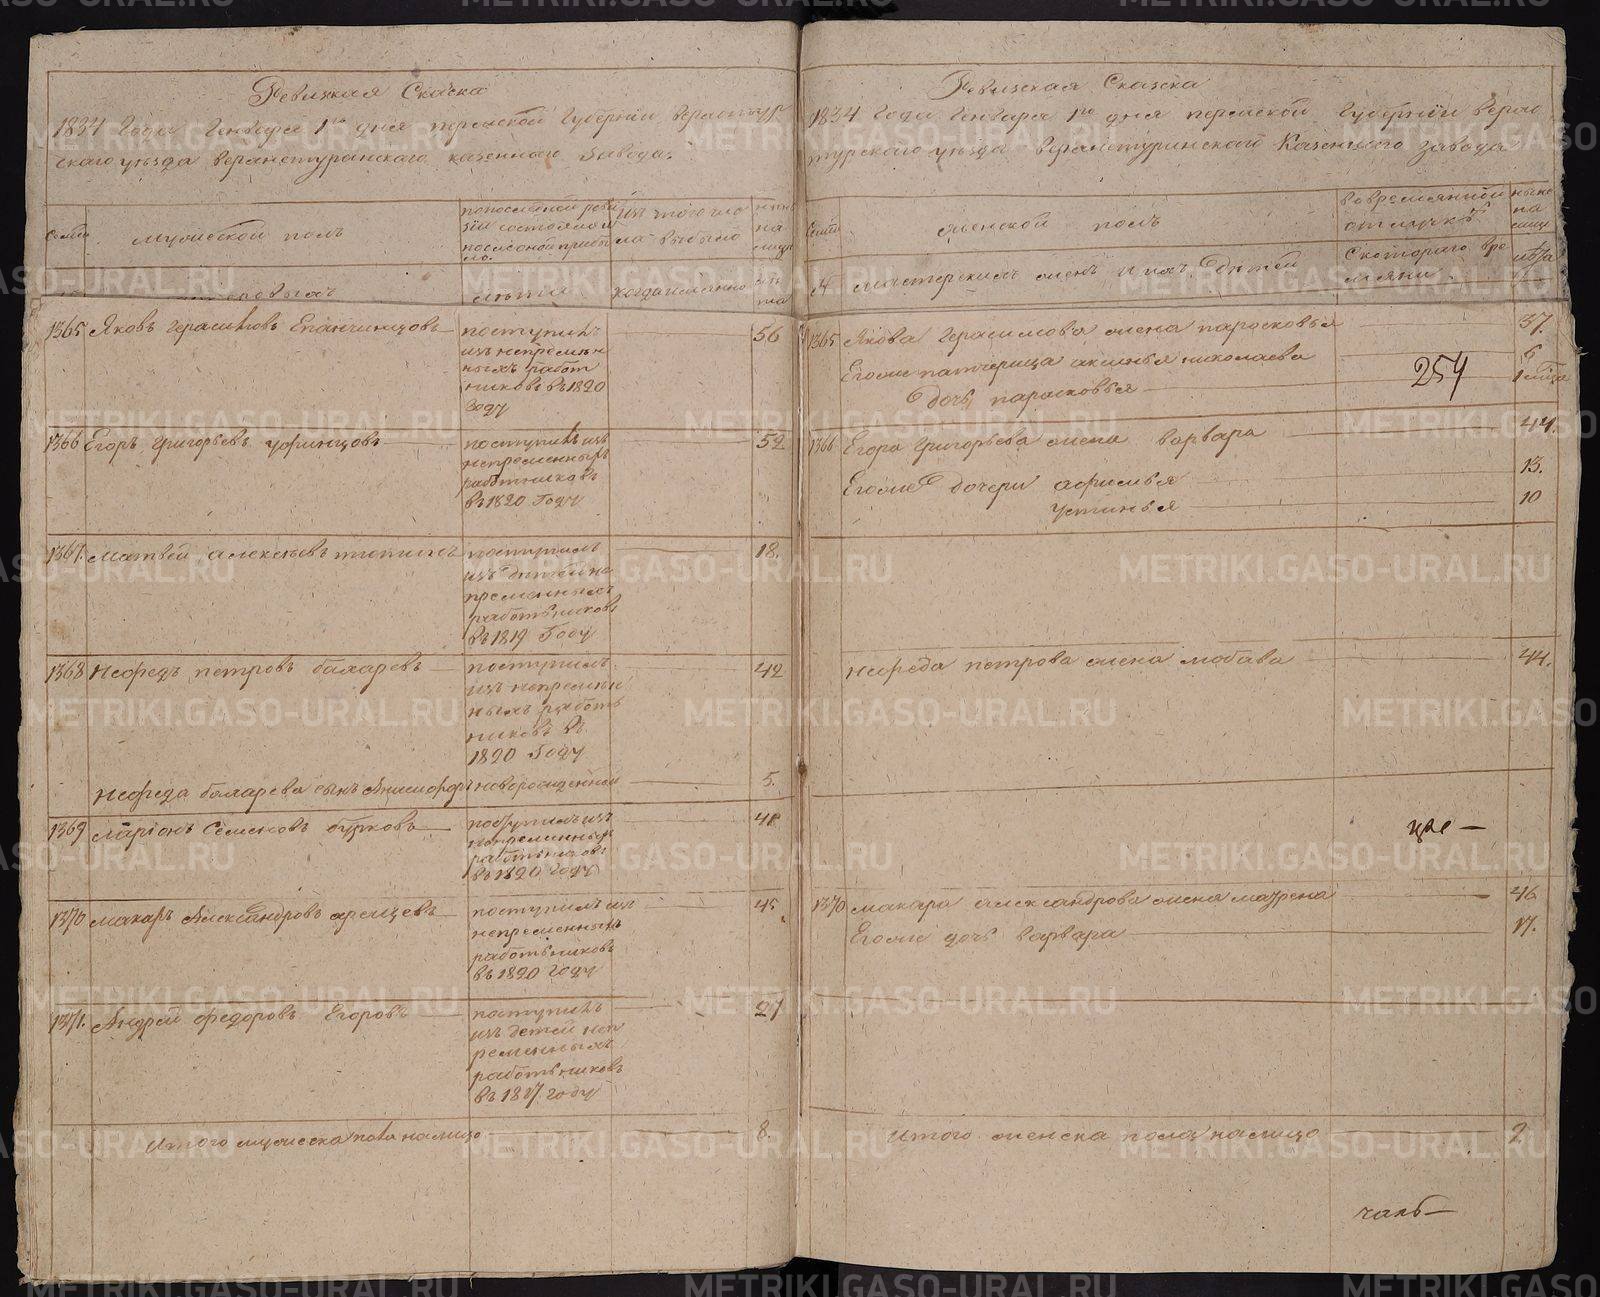 Ревизкая Сказка
1834 Года Генваря 1го дня пермской Губернии Верхотур
скаго уезда верхнетуринскаго казенного Завода.
семьи
мужеской полъ
попоследней реви
зіи состояло и
после оной прибы
ло.
изъ того чис
ла выбыло
ныне
на
лицо
лета
когда именно
ле
та
1365 Яковъ Герасимовъ Епанчинцовъ
поступилъ
изъ непремен
ныхъ работ
никовъ въ 1820
Году
56
1366 Егоръ Григорьевъ уфинцовъ
поступилъ изъ
непременныхъ
работниковъ
въ 1820 Году
52
1367. Матвей алексеевъ
поступилъ
изъ Детей не
пременныхъ
работниковъ
въ 1819 Году
18.
1368 Нефедъ петровъ бахаревъ
поступилъ
изъ непремен
ныхъ работ
никовъ въ
1820 Году
42
Нефеда бахарева сынъ Анисифоръ новорожденной
5.
1369 Маріонъ Семеновъ бурковъ
поступилъ изъ
непременныхъ
работниковъ
въ 1820 Году
1370 макаръ Александровъ
поступилъ изъ
непременныхъ
работниковъ
въ 1820 Году
45
1371. Андрей федоровъ Егоровъ
поступилъ
изъ детей неп
ременныхъ
работниковъ
въ 1817. году
27
Итого мужеска пола налицо 8.
Ревизская Сказка
1834 Года Генваря 1го дня пермской Губерніи верхо
турскаго уезда верхнетуринскаго Казеннаго завода
женской полъ
вовремянной
отлучке
ныне
на
лицо
№ мастерскихъ женъ и ихъ Детей
Скотораго вре
мяни
лета
1365 Якова Герасимова жена парасковья 37.
Егоже патчерица аксинья николаева 6
Дочь парасковья
254
1366 Егора Григорьева жена варвара 44.
Егоже Дочери афимья 13.
устинья 10
Нефеда петрова жена любава 44.
1370 макара александрова жена матрена 46
Егоже дочь варвара 17.
итого женска пола налицо 9